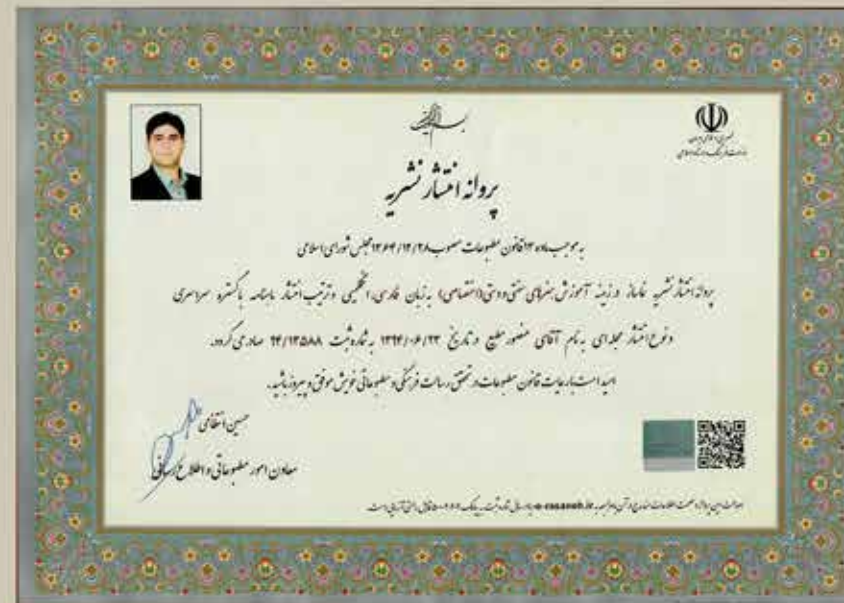 جمهوری اسلامی ایران
وزارت فرهنگ و ارشاد اسلامی
پروانه انتشار نشریه
به موجب ماده ۱۳ قانون مطبوعات مصوب ۱۳۶۴/۱۲/۲۸ مجلس شورای اسلامی
پروانه انتشار نشریه در زمینه آموزش هنرهای سنتی و دستی (اختصاصی) به زبان فارسی، انگلیسی و ترتیب انتشار ماهنامه با گستره سراسری
و نوع انتشار مجله‌ای به نام آقای منصور مطیع در تاریخ ۱۳۹۴/۰۶/۲۳ به شماره ثبت ۹۴/۱۳۵۸۸ صادر می گردد.
امید است با رعایت قانون مطبوعات در تحقق رسالت فرهنگی و مطبوعاتی خویش موفق و پیروز باشید.
حسین انتظامی
معاون امور مطبوعاتی و اطلاع رسانی
e-rasaneh.ir